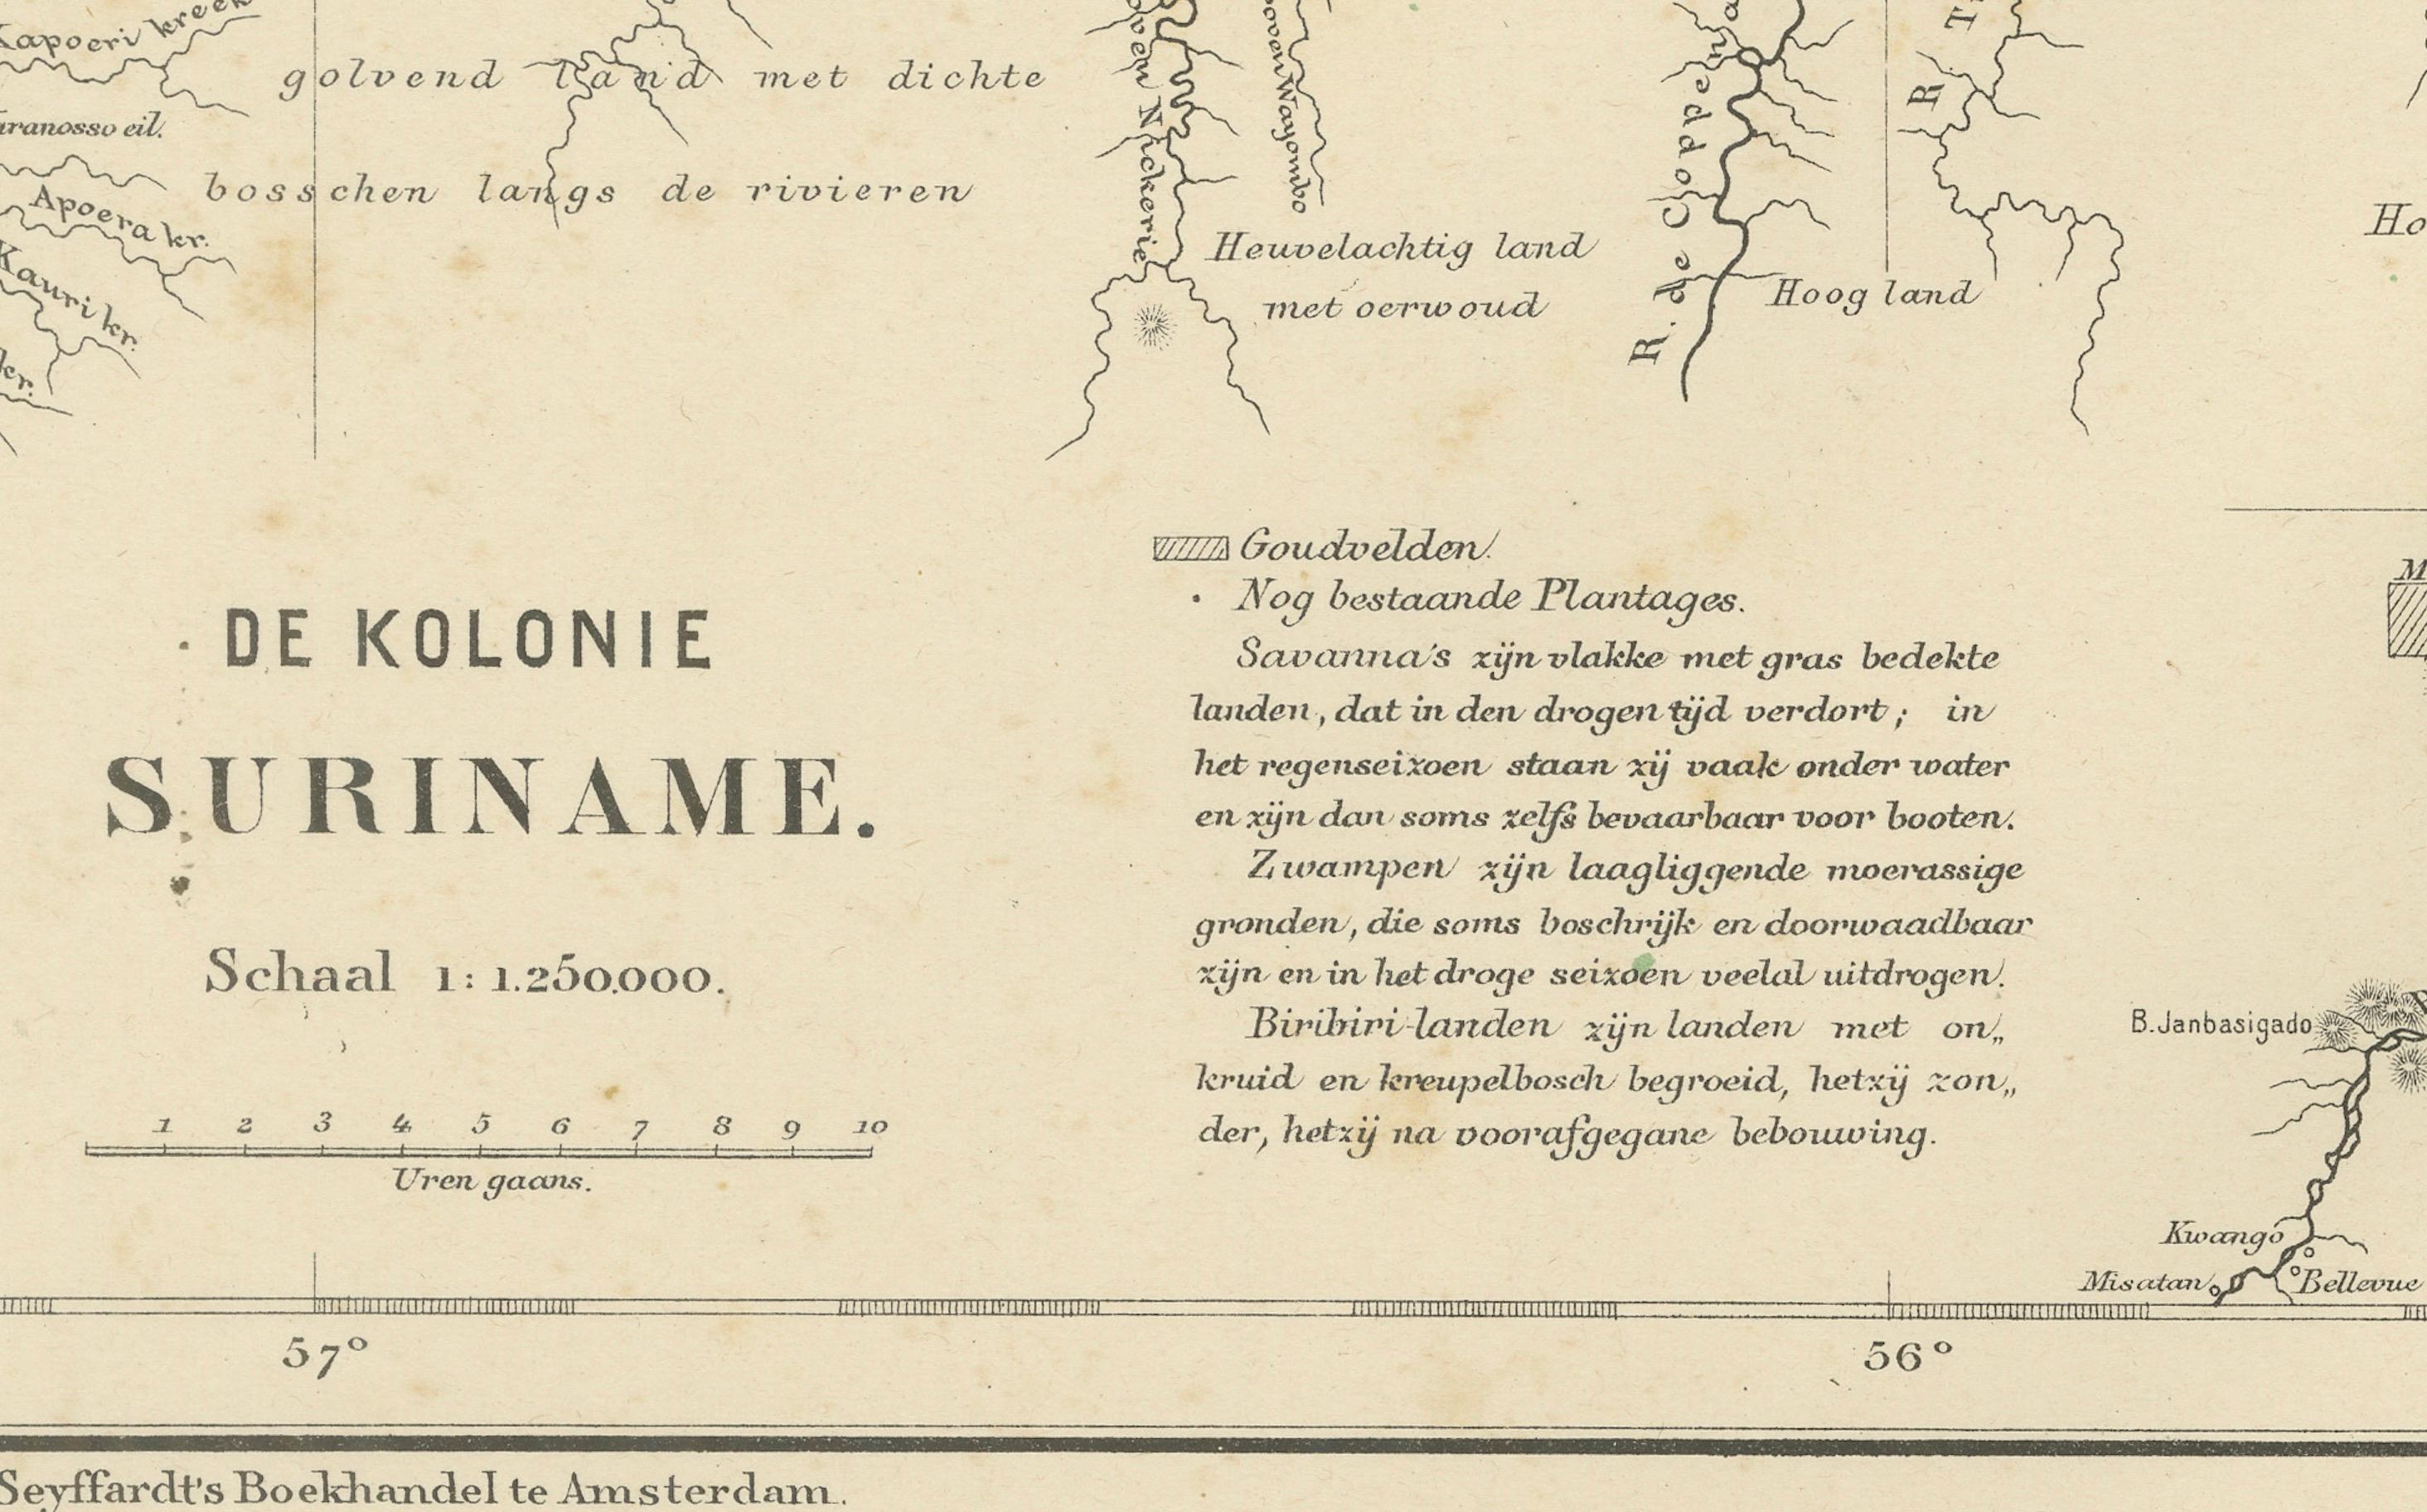 Kapoeri kreek
golvend land met dichte
eil.
bosschen langs de rivieren
Apoera kr.
Kauri kr.
kr.
Nickerie
Wayombo
Heuvelachtig land
met oerwoud
R. de Coppename
R.
Hoog land
Goudvelden.
Nog bestaande Plantages.
DE KOLONIE
SURINAME.
Schaal 1: 1.250.000.
1 2 3 4 5 6 7 8 9 10
Uren gaans.
Savanna's zijn vlakke met gras bedekte
landen, dat in den drogen tijd verdort; in
het regenseizoen staan zij vaak onder water
en zijn dan soms zelfs bevaarbaar voor booten.
Zwampen zijn laagliggende moerassige
gronden, die soms boschrijk en doorwaadbaar
zijn en in het droge seizoen veelal uitdrogen.
Biribiri-landen zijn landen met on„
kruid en kreupelbosch begroeid, hetzij zon„
der, hetzij na voorafgegane bebouwing.
B. Janbasigado
Kwango
Misatan
Bellevue
57° 56°
Seyffardt's Boekhandel te Amsterdam.